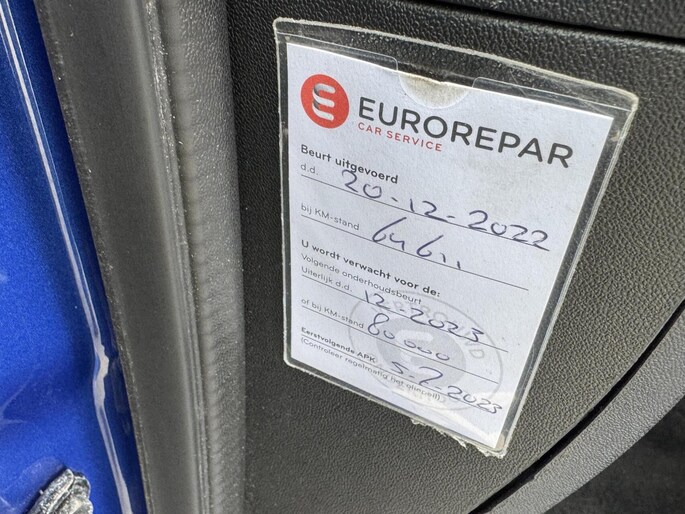 EUROREPAR
CAR SERVICE
Beurt uitgevoerd
d.d. 20-12-2022
bij KM-stand 64611
U wordt verwacht voor de:
Volgende onderhoudsbeurt
Uiterlijk d.d. 12-2023
of bij KM-stand 80.000
Eerstvolgende APK: 5-2-2023
(Controleer regelmatig het oliepeil!)